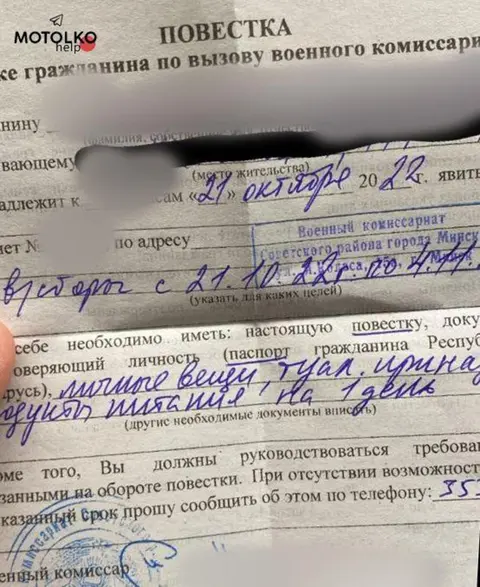 MOTOLKO
help
ПОВЕСТКА
ке гражданина по вызову военного комиссари
нину
вающему
(место жительства)
адлежит к сам «21» октября 2022 г. явить
нет № по адресу
Военный комиссариат
Советского района города Минск
в/сборы с 21.10.22г. по 4.11.
(указать для каких целей)
себе необходимо иметь: настоящую повестку, доку
оверяющий личность (паспорт гражданина Респуб
арусь), личные вещи, туал. принад
одукты питания на 1 день
(другие необходимые документы вписать)
оме того, Вы должны руководствоваться требова
занными на обороте повестки. При отсутствии возможност
казанный срок прошу сообщить об этом по телефону: 353
енный комиссар